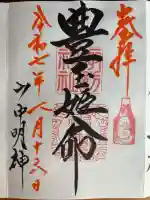 奉拝
豊玉姫命
令和七年八月十六日
山中明神